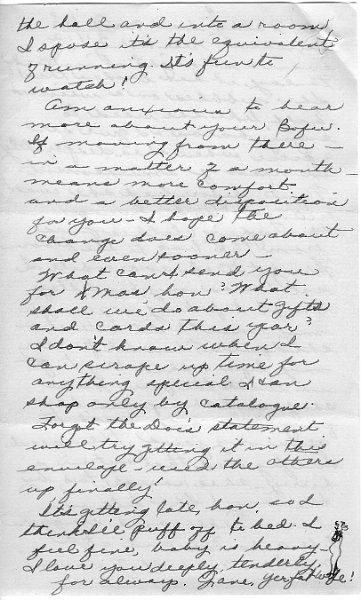 the hall and into a room
I spose it's the equivalent
of running. It's fun to
watch!
Am anxious to hear
more about your Bofu.
If moving from there —
in a matter of a month —
means more comfort
and a better disposition
for you — I hope the
change does come about
and even sooner —
What can I send you
for Xmas hon? What
shall we do about gifts
and cards this year?
I don't know when I
can scrape up time for
anything special. I can
shop only by catalogue.
Forgot the Doc's statement
will try getting it in this
envelope — used the others
up finally!
It's getting late, hon, so I
think I'll puff off to bed. I
feel fine, baby is heavy —
I love you deeply, tenderly,
for always. Jane, yer fat wife!